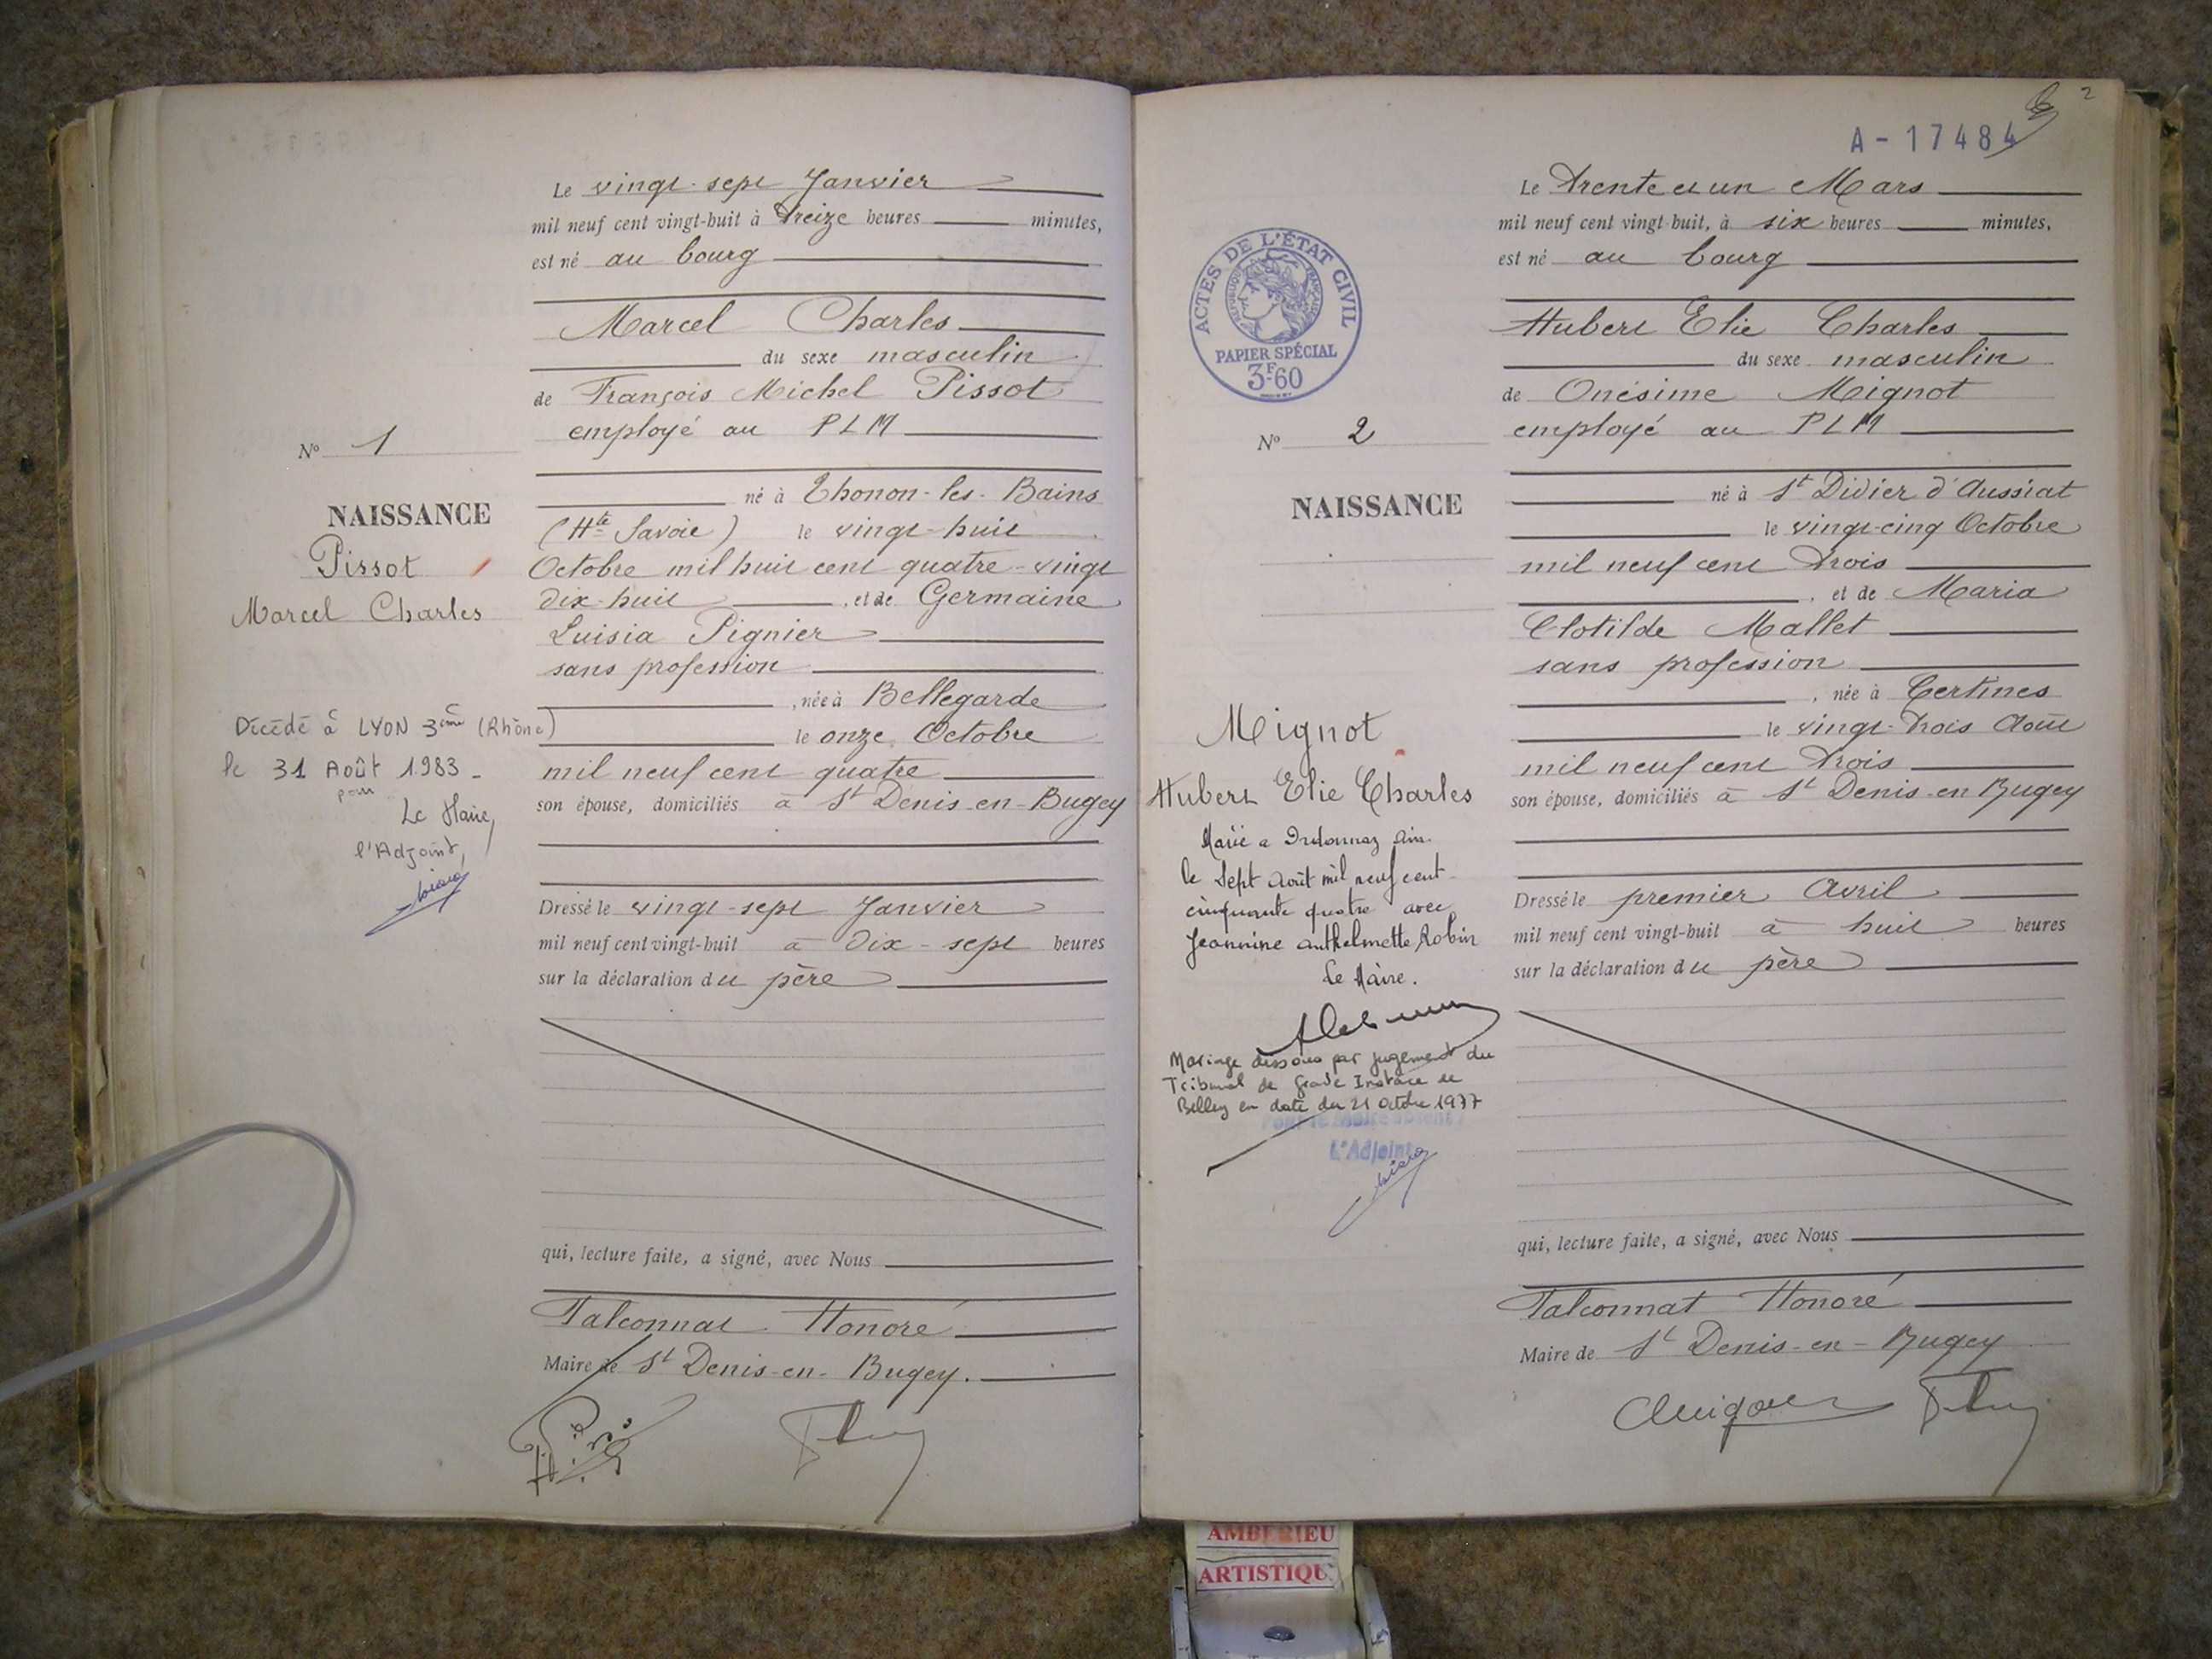 Le vingt-sept Janvier
mil neuf cent vingt-huit à treize heures minutes,
est né au bourg
Marcel Charles
du sexe masculin
de François Michel Pissot
employé au PLM
né à Thonon-les-Bains
(Hte Savoie) le vingt-huit
Octobre mil huit cent quatre-vingt
dix-huit, et de Germaine
Luisia Pignier
sans profession
, née à Bellegarde
le onze Octobre
mil neuf cent quatre
son épouse, domiciliés à St Denis-en-Bugey
Dressé le vingt-sept Janvier
mil neuf cent vingt-huit à dix-sept heures
sur la déclaration du père
qui, lecture faite, a signé, avec Nous
Falconnat Honoré
Maire de St Denis-en-Bugey.
No 1
NAISSANCE
Pissot
Marcel Charles
Décédé à LYON 3ème (Rhône)
le 31 Août 1983 -
pour
Le Maire,
l'Adjoint,
2
A-17484
Le trente et un Mars
mil neuf cent vingt-huit, à six heures minutes,
est né au bourg
Hubert Elie Charles
du sexe masculin
de Onésime Mignot
employé au PLM
né à St Didier d'Aussiat
le vingt-cinq Octobre
mil neuf cent trois
, et de Maria
Clotilde Mallet
sans profession
, née à Certines
le vingt-trois Août
mil neuf cent trois
son épouse, domiciliés à St Denis-en Bugey
Dressé le premier Avril
mil neuf cent vingt-huit à huit heures
sur la déclaration du père
qui, lecture faite, a signé, avec Nous
Falconnat Honoré
Maire de St Denis-en-Bugey
ACTES DE L'ÉTAT CIVIL
RÉPUBLIQUE FRANÇAISE
PAPIER SPÉCIAL
3F60
No 2
NAISSANCE
Mignot
Hubert Elie Charles
Marié a Ordonnaz Ain.
le Sept Août mil neuf cent
cinquante quatre avec
Jeannine Anthelmette Robin
Le Maire.
Mariage dissous par jugement du
Tribunal de Grande Instance de
Belley en date du 21 Octobre 1977
Pour le Maire absent
L'Adjoint
AMBERIEU
ARTISTIQU